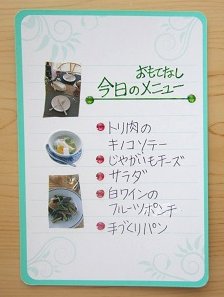 おもてなし
今日のメニュー
トリ肉の
キノコソテー
じゃがいもチーズ
サラダ
白ワインの
フルーツポンチ
手づくりパン